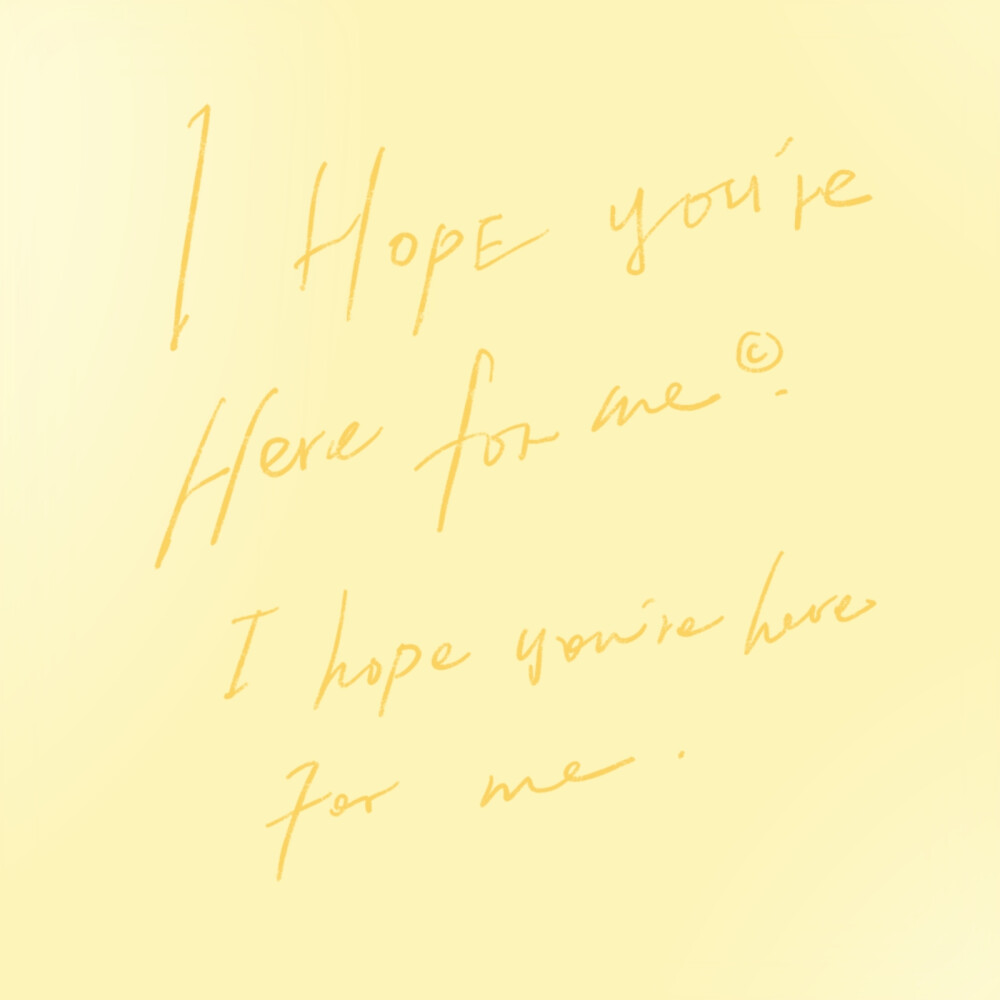 I HopE you're
Here for me ©.
I hope you're here
For me.